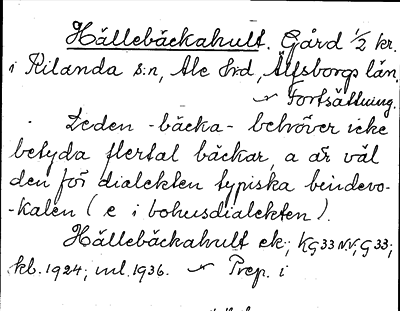 Hällebäckahult. Gård 1/2 kr.
i Kilanda s:n, Ale hrd, Älfsborgs län.
Fortsättning.
Leden -bäcka- behöver icke
betyda flertal bäckar, a är väl
den för dialekten typiska bindevo-
-kalen (e i bohusdialekten).
Hällebäckahult ek., KG33 NV, G33;
kb. 1924; ml. 1936. Prep. i